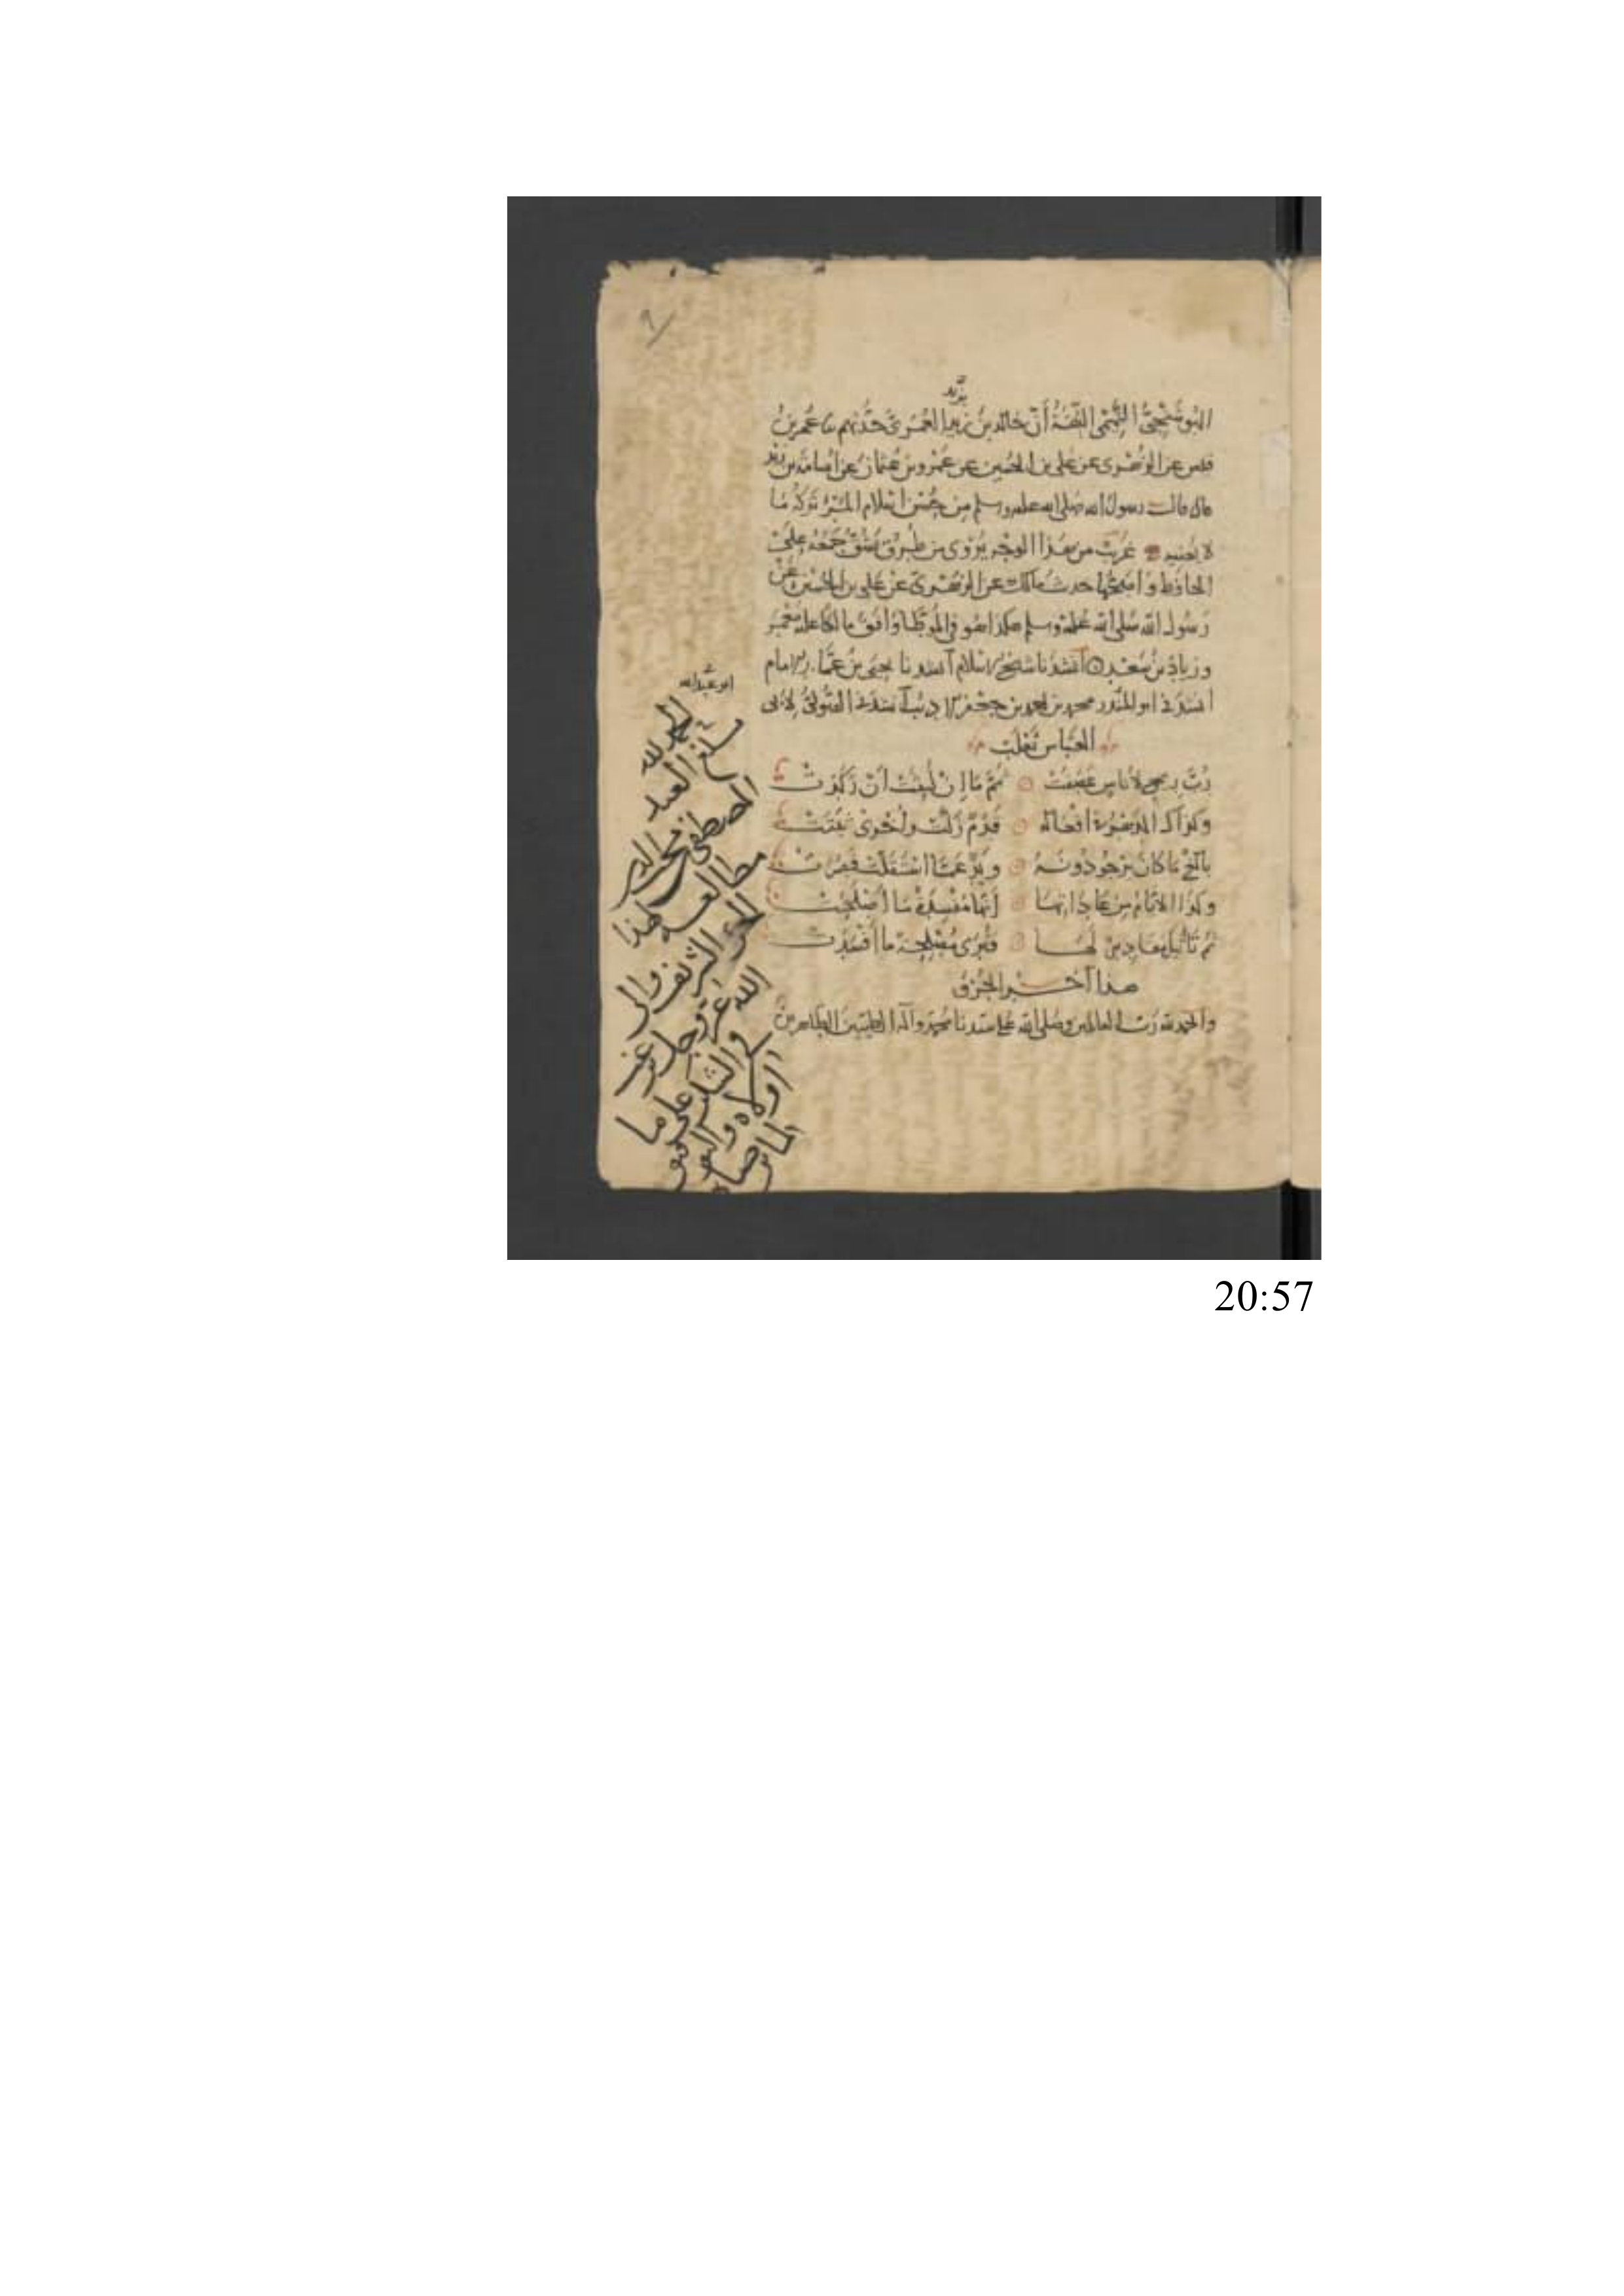 يزيد
البوشنجي التميمي الثقة أن خالد بن يزيد العمري حدثهم ثنا عمر بن
قيس عن الزهري عن علي بن الحسين عن عمرو بن عثمان عن أسامة بن زيد
قال قال رسول الله صلى الله عليه وسلم من حسن إسلام المرء تركه ما
لا يعنيه غريب من هذا الوجه يروى من طرق جمعه علي
الحافظ وأصحها حديث مالك عن الزهري عن علي بن الحسين عن
رسول الله صلى الله عليه وسلم هكذا هو في الموطأ وافق مالكا عليه معمر
وزياد بن سعد أنشدنا شيخ الإسلام أنشدنا يحيى بن عمار الإمام
أنشدني أبو المنذر محمد بن أحمد بن جعفر الأديب أنشدني الصولي لأبي
العباس ثعلب
رب ريح لأناس عصفت ثم ما إن لبثت أن ركدت
وكذاك الدهر في أفعاله قدم زلت وأخرى ثبتت
بالغ ما كان يرجو دونه ويد عما استقلت قصرت
وكذا الأيام من عاداتها أنها مفسدة ما أصلحت
ثم تأتيك مقادير لها فترى مصلحة ما أفسدت
هذا آخر الجزء
والحمد لله رب العالمين وصلى الله على سيدنا محمد وآله الطيبين الطاهرين
أبو عبد الله
الحمد لله
العبد
مطالعة هذا
الجزء الشريف
الله عز وجل
والشكر على ما
أولاه
20:57